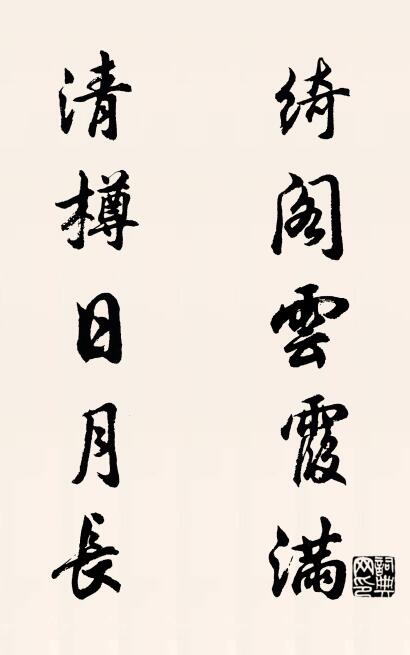 綺閣雲霞满
清樽日月長
詞典網印